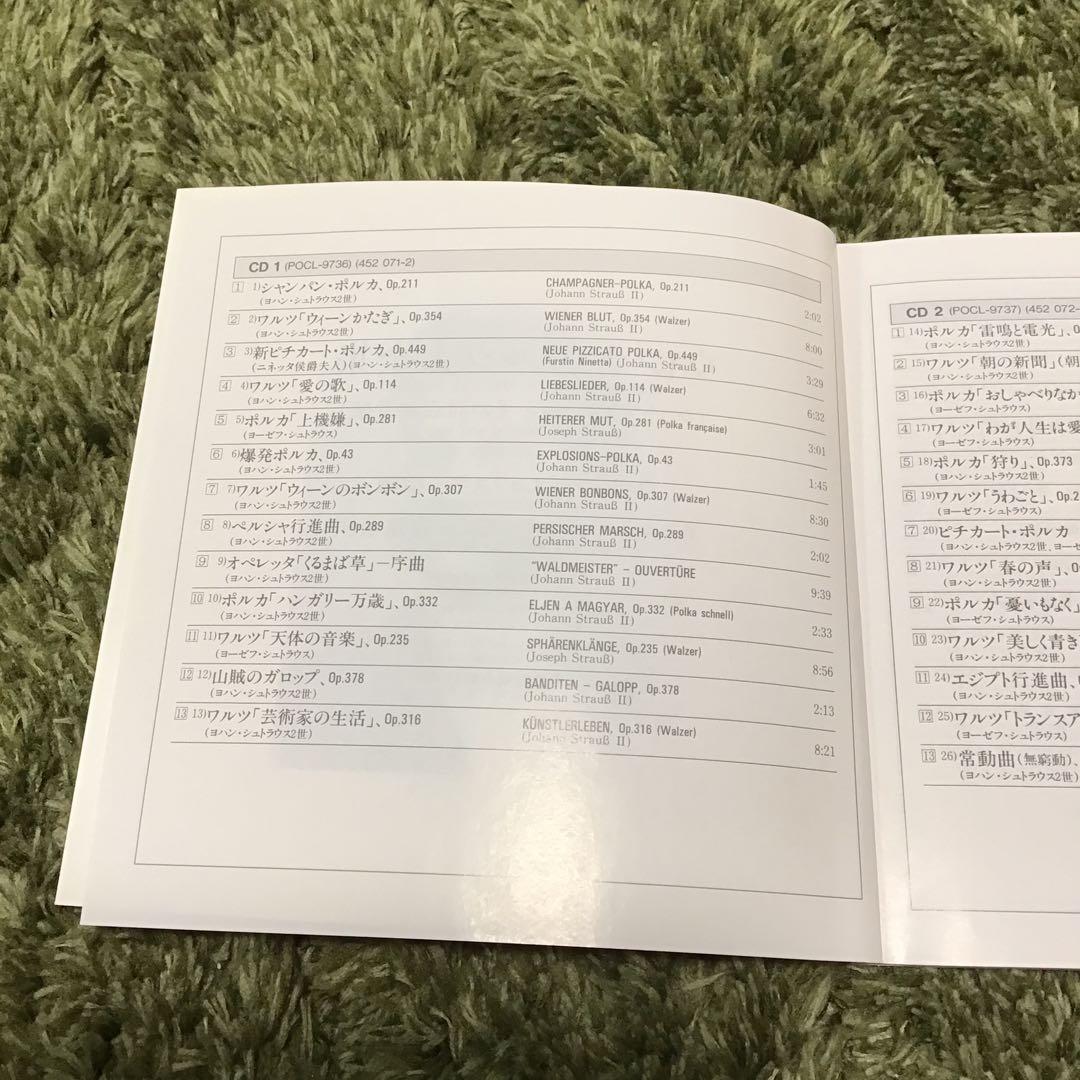 CD 1 (POCL-9736) (452 071-2)
1 1)シャンパン・ポルカ、Op.211 CHAMPAGNER-POLKA, Op.211
(ヨハン・シュトラウス2世) (Johann Strauß II) 2:02
2 2)ワルツ「ウィーンかたぎ」、Op.354 WIENER BLUT, Op.354 (Walzer)
(ヨハン・シュトラウス2世) (Johann Strauß II) 8:00
3 3)新ピチカート・ポルカ、Op.449 NEUE PIZZICATO POLKA, Op.449
(ニネッタ侯爵夫人)(ヨハン・シュトラウス2世) (Furstin Ninetta) (Johann Strauß II) 3:29
4 4)ワルツ「愛の歌」、Op.114 LIEBESLIEDER, Op.114 (Walzer)
(ヨハン・シュトラウス2世) (Johann Strauß II) 6:32
5 5)ポルカ「上機嫌」、Op.281 HEITERER MUT, Op.281 (Polka française)
(ヨーゼフ・シュトラウス) (Joseph Strauß) 3:01
6 6)爆発ポルカ、Op.43 EXPLOSIONS-POLKA, Op.43
(ヨハン・シュトラウス2世) (Johann Strauß II) 1:45
7 7)ワルツ「ウィーンのボンボン」、Op.307 WIENER BONBONS, Op.307 (Walzer)
(ヨハン・シュトラウス2世) (Johann Strauß II) 8:30
8 8)ペルシャ行進曲、Op.289 PERSISCHER MARSCH, Op.289
(ヨハン・シュトラウス2世) (Johann Strauß II) 2:02
9 9)オペレッタ「くるまば草」－序曲 "WALDMEISTER" - OUVERTÜRE
(ヨハン・シュトラウス2世) (Johann Strauß II) 9:39
10 10)ポルカ「ハンガリー万歳」、Op.332 ELJEN A MAGYAR, Op.332 (Polka schnell)
(ヨハン・シュトラウス2世) (Johann Strauß II) 2:33
11 11)ワルツ「天体の音楽」、Op.235 SPHÄRENKLÄNGE, Op.235 (Walzer)
(ヨーゼフ・シュトラウス) (Joseph Strauß) 8:56
12 12)山賊のガロップ、Op.378 BANDITEN - GALOPP, Op.378
(ヨハン・シュトラウス2世) (Johann Strauß II) 2:13
13 13)ワルツ「芸術家の生活」、Op.316 KÜNSTLERLEBEN, Op.316 (Walzer)
(ヨハン・シュトラウス2世) (Johann Strauß II) 8:21
CD 2 (POCL-9737) (452 072-
1 14)ポルカ「雷鳴と電光」、O
(ヨハン・シュトラウス2世)
2 15)ワルツ「朝の新聞」(朝
(ヨハン・シュトラウス2世)
3 16)ポルカ「おしゃべりなか
(ヨーゼフ・シュトラウス)
4 17)ワルツ「わが人生は愛
(ヨーゼフ・シュトラウス)
5 18)ポルカ「狩り」、Op.373
(ヨハン・シュトラウス2世)
6 19)ワルツ「うわごと」、Op.2
(ヨーゼフ・シュトラウス)
7 20)ピチカート・ポルカ
(ヨハン・シュトラウス2世、ヨーゼ
8 21)ワルツ「春の声」、O
(ヨハン・シュトラウス2世)
9 22)ポルカ「憂いもなく」
(ヨーゼフ・シュトラウス)
10 23)ワルツ「美しく青き
(ヨハン・シュトラウス2世)
11 24)エジプト行進曲、
(ヨハン・シュトラウス2世)
12 25)ワルツ「トランスア
(ヨーゼフ・シュトラウス)
13 26)常動曲(無窮動)、
(ヨハン・シュトラウス2世)